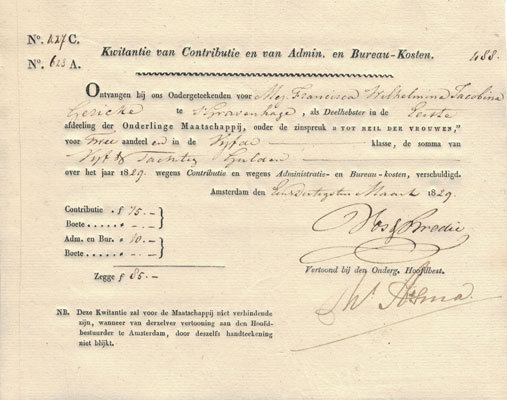 N°. 127 C.
Kwitantie van Contributie en van Admin. en Bureau-Kosten.
488.
N°. 623 A.
Ontvangen bij ons Ondergeteekenden voor Mej. Francisca Wilhelmina Jacobina
Gericke te 's Gravenhage, als Deelhebster in de Eerste
afdeeling der Onderlinge Maatschappij, onder de zinspreuk „TOT HEIL DER VROUWEN,"
voor Twee aandeel en in de Vijfde klasse, de somma van
Vijf & Tachtig Gulden
over het jaar 1829 wegens Contributie en wegens Administratie- en Bureau-kosten, verschuldigd.
Amsterdam den Een Dertigsten Maart 1829.
Contributie . ƒ 75.-
Boete . . . - -
Adm. en Bur. „ 10.-
Boete . . . - -
Zegge ƒ 85.-
Vos & Bredie
Vertoond bij den Onderg. Hoofdbest.
NB. Deze Kwitantie zal voor de Maatschappij niet verbindende
zijn, wanneer van derzelver vertooning aan den Hoofd-
bestuurder te Amsterdam, door deszelfs handteekening
niet blijkt.